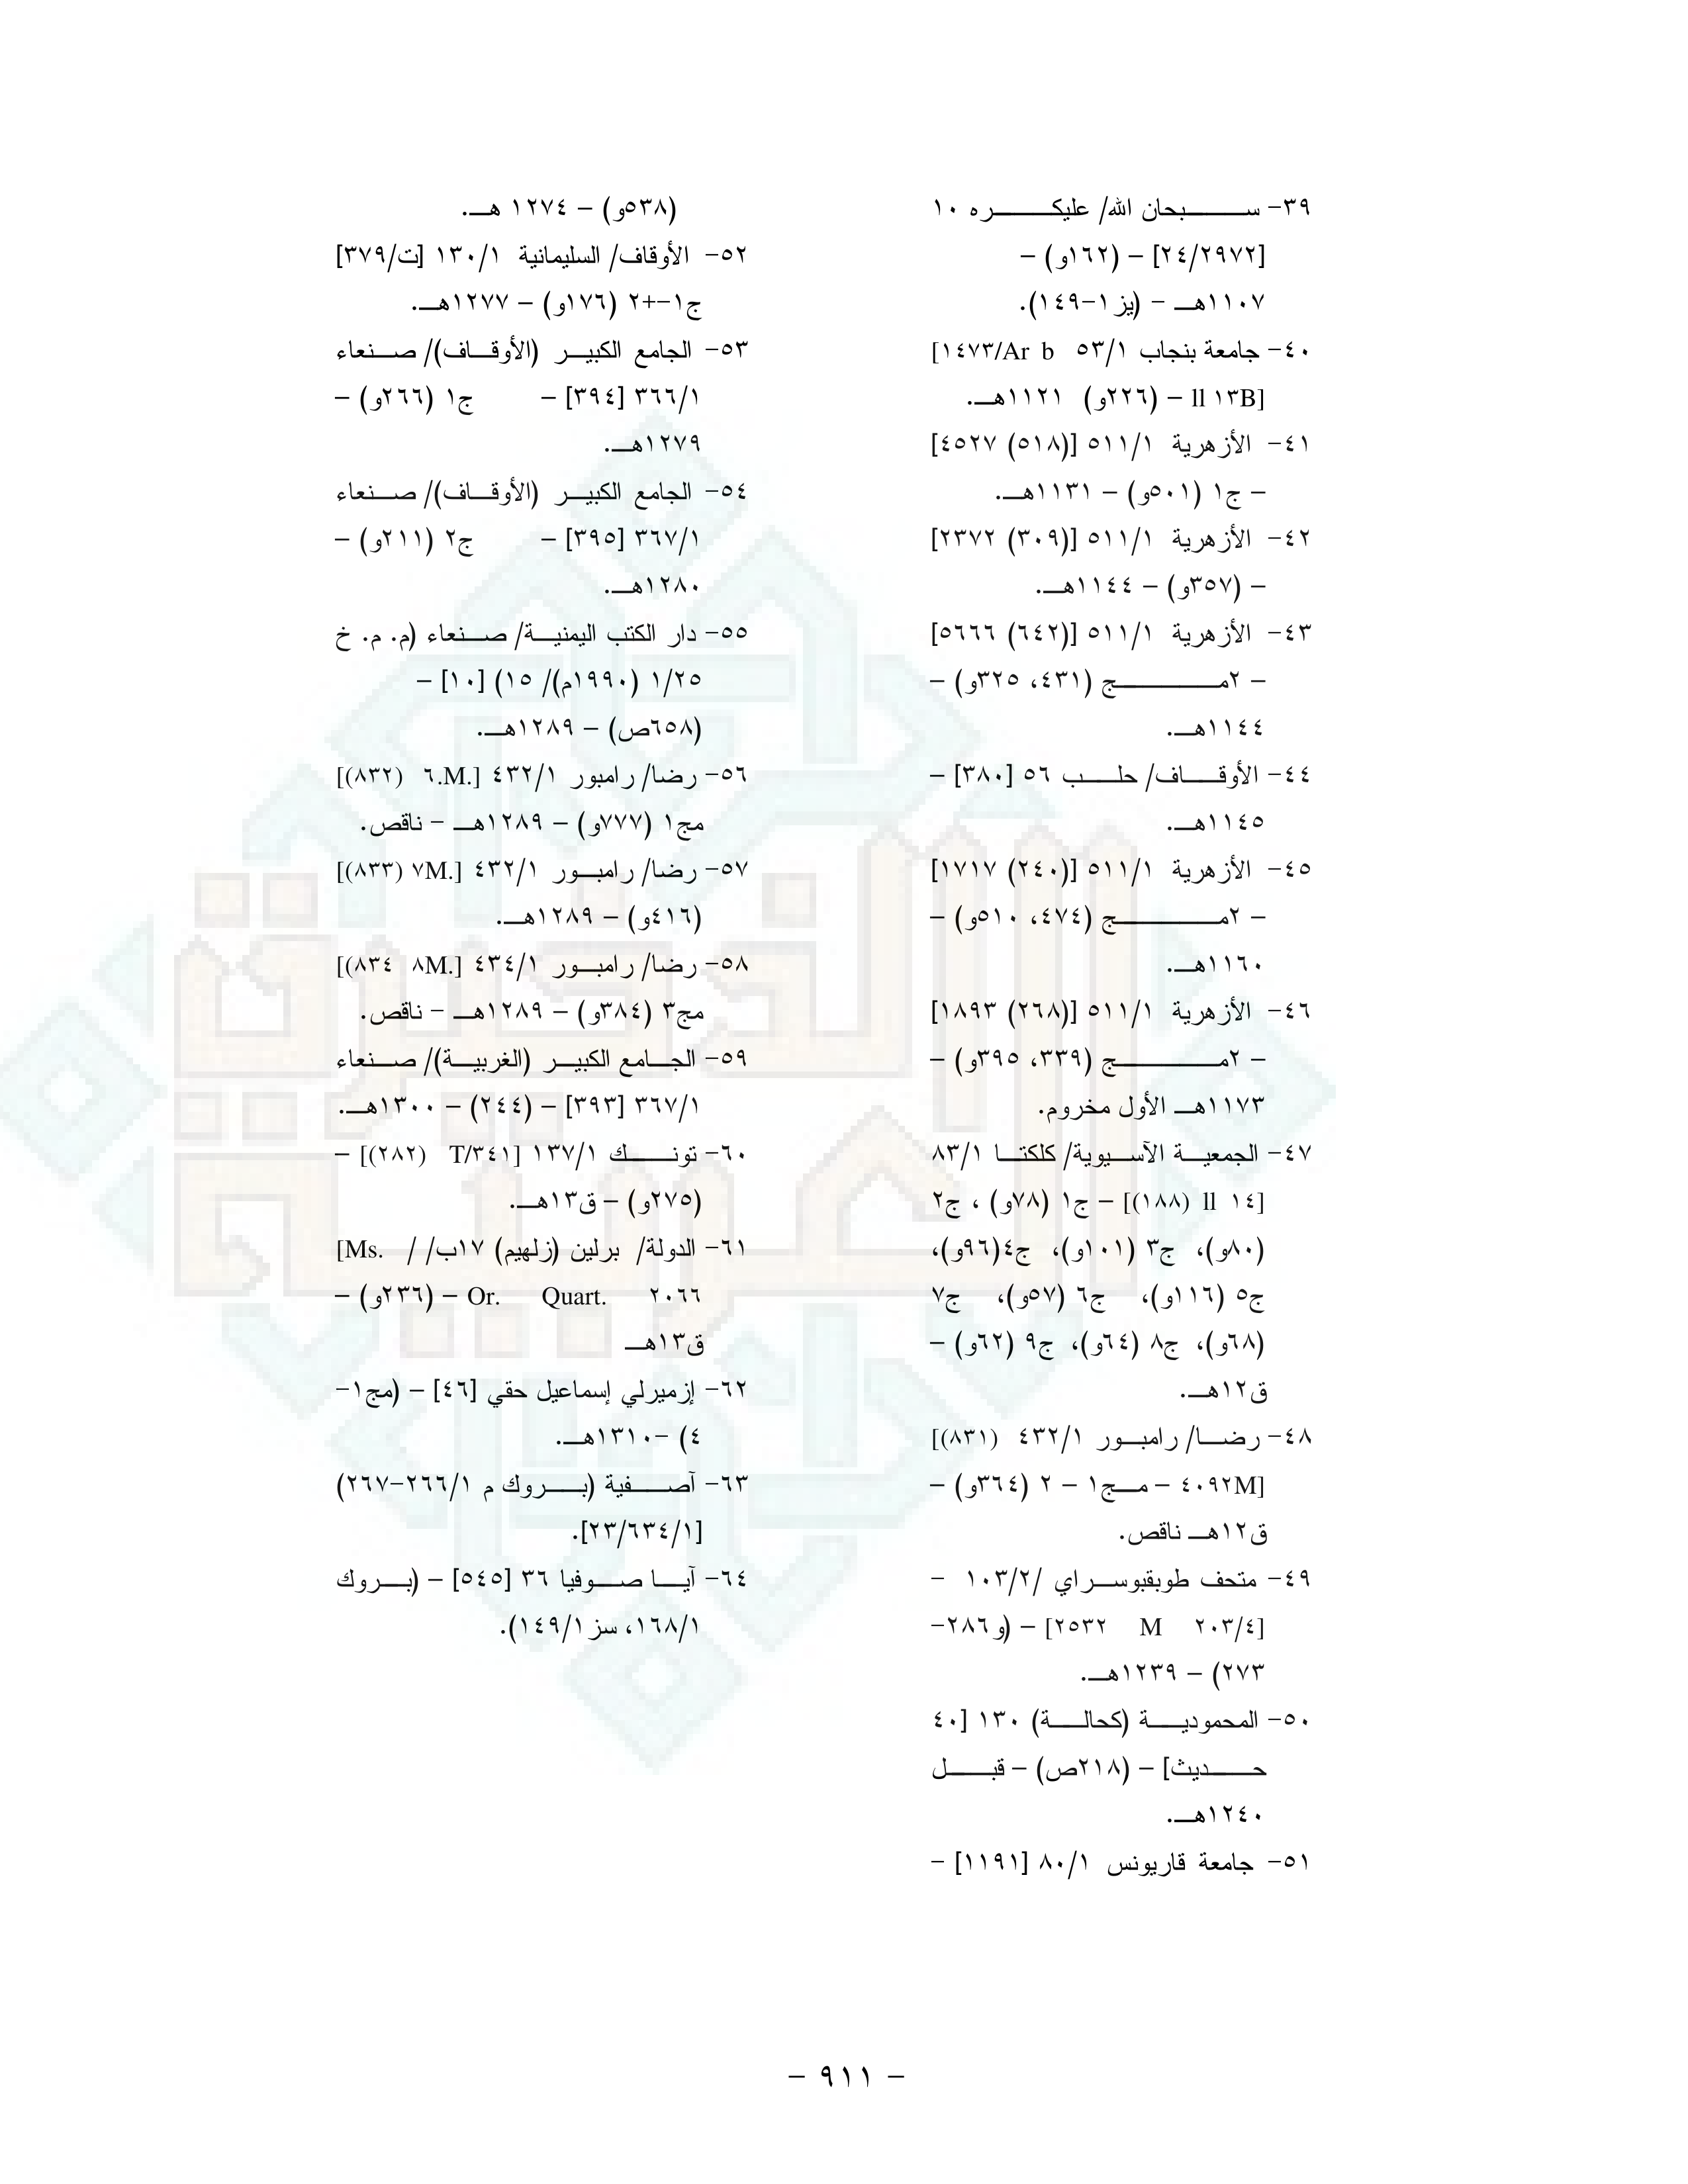 ٣٩- سبحان الله/ عليكره ١٠
[٢٤/٢٩٧٢] – (١٦٢و) –
١١٠٧هـ – (يز١-١٤٩).
٤٠- جامعة بنجاب ٥٣/١ [١٤٧٣/Ar b
ll ١٣B] – (٢٢٦و) ١١٢١هـ.
٤١- الأزهرية ٥١١/١ [(٥١٨) ٤٥٢٧]
– ج١ (٥٠١و) – ١١٣١هـ.
٤٢- الأزهرية ٥١١/١ [(٣٠٩) ٢٣٧٢]
– (٣٥٧و) – ١١٤٤هـ.
٤٣- الأزهرية ٥١١/١ [(٦٤٢) ٥٦٦٦]
– ٢مج (٤٣١، ٣٢٥و) –
١١٤٤هـ.
٤٤- الأوقاف/ حلب ٥٦ [٣٨٠] –
١١٤٥هـ.
٤٥- الأزهرية ٥١١/١ [(٢٤٠) ١٧١٧]
– ٢مج (٤٧٤، ٥١٠و) –
١١٦٠هـ.
٤٦- الأزهرية ٥١١/١ [(٢٦٨) ١٨٩٣]
– ٢مج (٣٣٩، ٣٩٥و) –
١١٧٣هـ الأول مخروم.
٤٧- الجمعية الآسيوية/ كلكتا ٨٣/١
[١٤ ll (١٨٨)] – ج١ (٧٨و) ، ج٢
(٨٠و)، ج٣ (١٠١و)، ج٤(٩٦و)،
ج٥ (١١٦و)، ج٦ (٥٧و)، ج٧
(٦٨و)، ج٨ (٦٤و)، ج٩ (٦٢و) –
ق١٢هـ.
٤٨- رضا/ رامبور ٤٣٢/١ [(٨٣١)
٤٠٩٢M] – مج١ – ٢ (٣٦٤و) –
ق١٢هـ ناقص.
٤٩- متحف طوبقبوسراي /١٠٣/٢ -
[٢٠٣/٤ M ٢٥٣٢] – (و٢٨٦-
٢٧٣) – ١٢٣٩هـ.
٥٠- المحمودية (كحالة) ١٣٠ [٤٠
حديث] – (٢١٨ص) – قبل
١٢٤٠هـ.
٥١- جامعة قاريونس ٨٠/١ [١١٩١] –
(٥٣٨و) – ١٢٧٤ هـ.
٥٢- الأوقاف/ السليمانية ١٣٠/١ [ت/٣٧٩]
ج١-+٢ (١٧٦و) – ١٢٧٧هـ.
٥٣- الجامع الكبير (الأوقاف)/ صنعاء
٣٦٦/١ [٣٩٤] – ج١ (٢٦٦و) –
١٢٧٩هـ.
٥٤- الجامع الكبير (الأوقاف)/ صنعاء
٣٦٧/١ [٣٩٥] – ج٢ (٢١١و) –
١٢٨٠هـ.
٥٥- دار الكتب اليمنية/ صنعاء (م. م. خ
١/٢٥ (١٩٩٠م)/ ١٥) [١٠] –
(٦٥٨ص) – ١٢٨٩هـ.
٥٦- رضا/ رامبور ٤٣٢/١ [.M.٦ (٨٣٢)]
مج١ (٧٧٧و) – ١٢٨٩هـ – ناقص.
٥٧- رضا/ رامبور ٤٣٢/١ [.٧M (٨٣٣)]
(٤١٦و) – ١٢٨٩هـ.
٥٨- رضا/ رامبور ٤٣٤/١ [.٨M ٨٣٤)]
مج٣ (٣٨٤و) – ١٢٨٩هـ – ناقص.
٥٩- الجامع الكبير (الغربية)/ صنعاء
٣٦٧/١ [٣٩٣] – (٢٤٤) – ١٣٠٠هـ.
٦٠- تونك ١٣٧/١ [T/٣٤١ (٢٨٢)] –
(٢٧٥و) – ق١٣هـ.
٦١- الدولة/ برلين (زلهيم) ١٧ب/ / [Ms.
Or. Quart. ٢٠٦٦ – (٢٣٦و) –
ق١٣هـ
٦٢- إزميرلي إسماعيل حقي [٤٦] – (مج١-
٤) -١٣١٠هـ.
٦٣- آصفية (بروك م ٢٦٦/١-٢٦٧)
[٢٣/٦٣٤/١].
٦٤- آيا صوفيا ٣٦ [٥٤٥] – (بروك
١٦٨/١، سز١٤٩/١).
– ٩١١ –